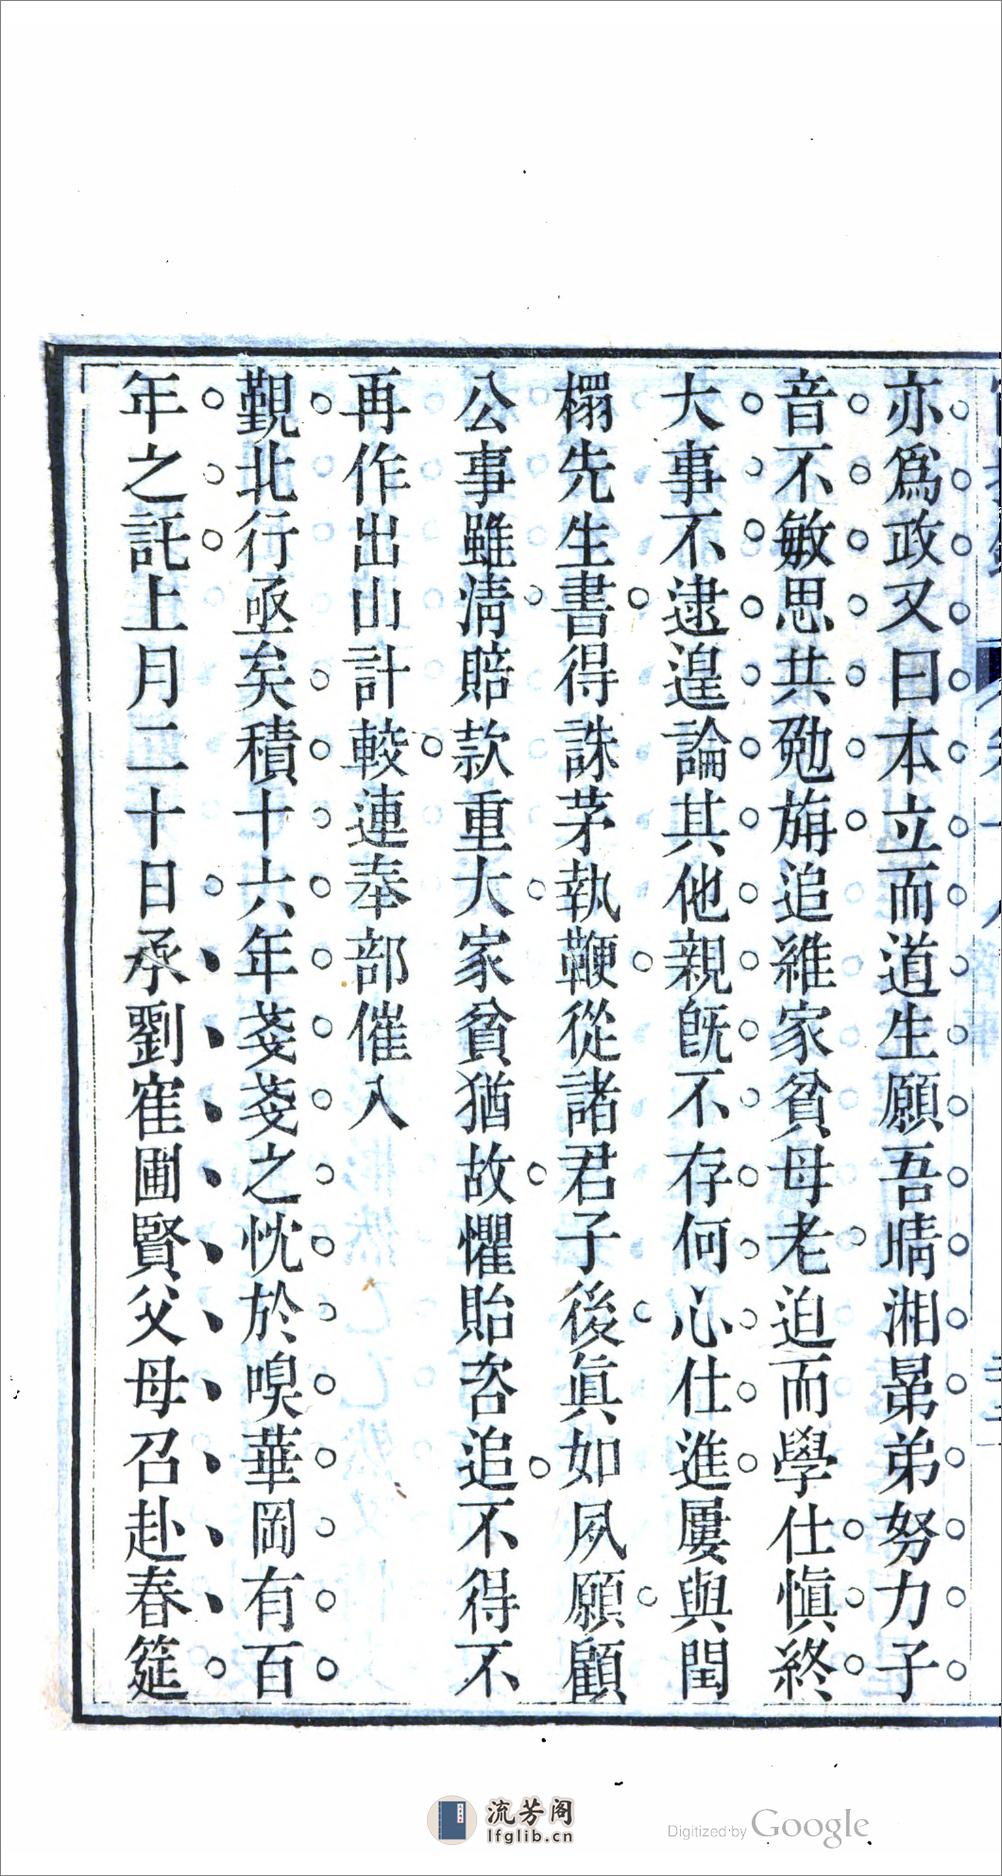 亦爲政又曰本立而道生願吾晴湘㬎弟努力子
音不敏思共勉旃追維家貧母老迫而學仕愼終
大事不逮遑論其他親旣不存何心仕進屢與閏
榻先生書得誅茅執鞭從諸君子後眞如夙願顧
公事雖淸賠款重大家貧猶故懼貽咨追不得不
再作出山計較連奉部催入
覲北行亟矣積十六年戔戔之忱於嗅華岡有百
年之託上月二十日承劉寉圃賢父母召赴春筵
流芳阁
lfglib.cn
Digitized by Google